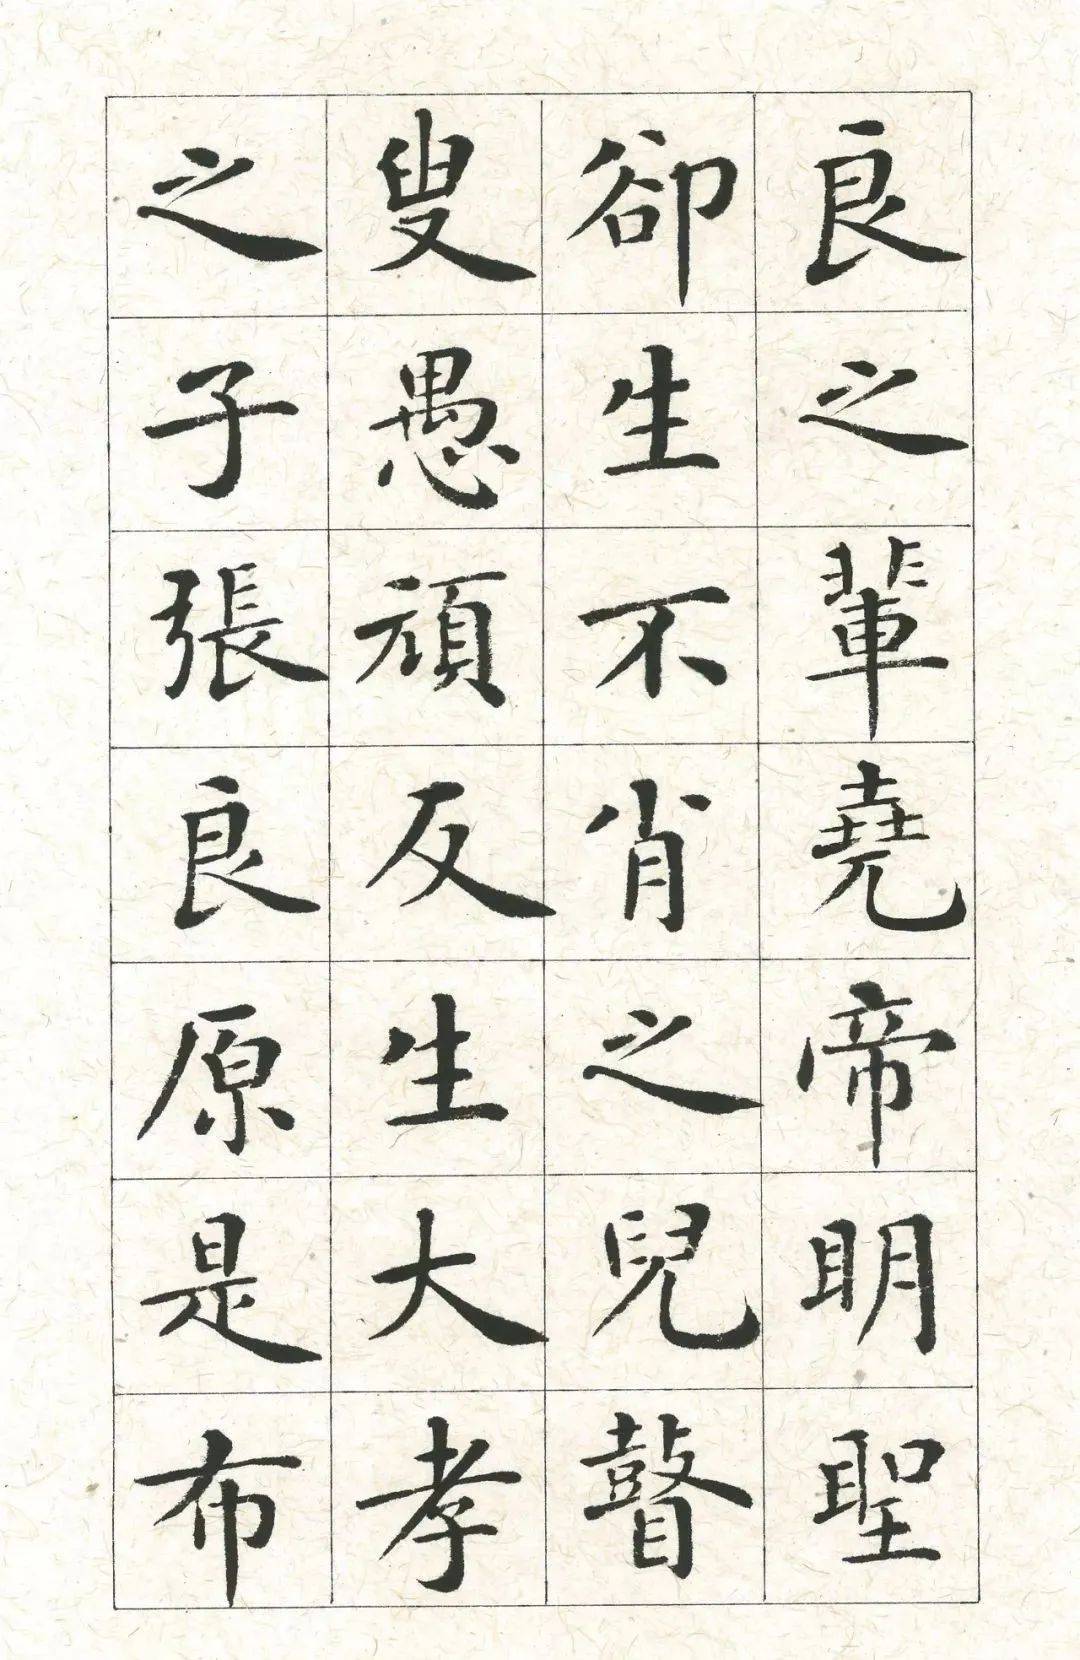 良之輩堯帝明聖
卻生不肖之兒瞽
叟愚頑反生大孝
之子張良原是布